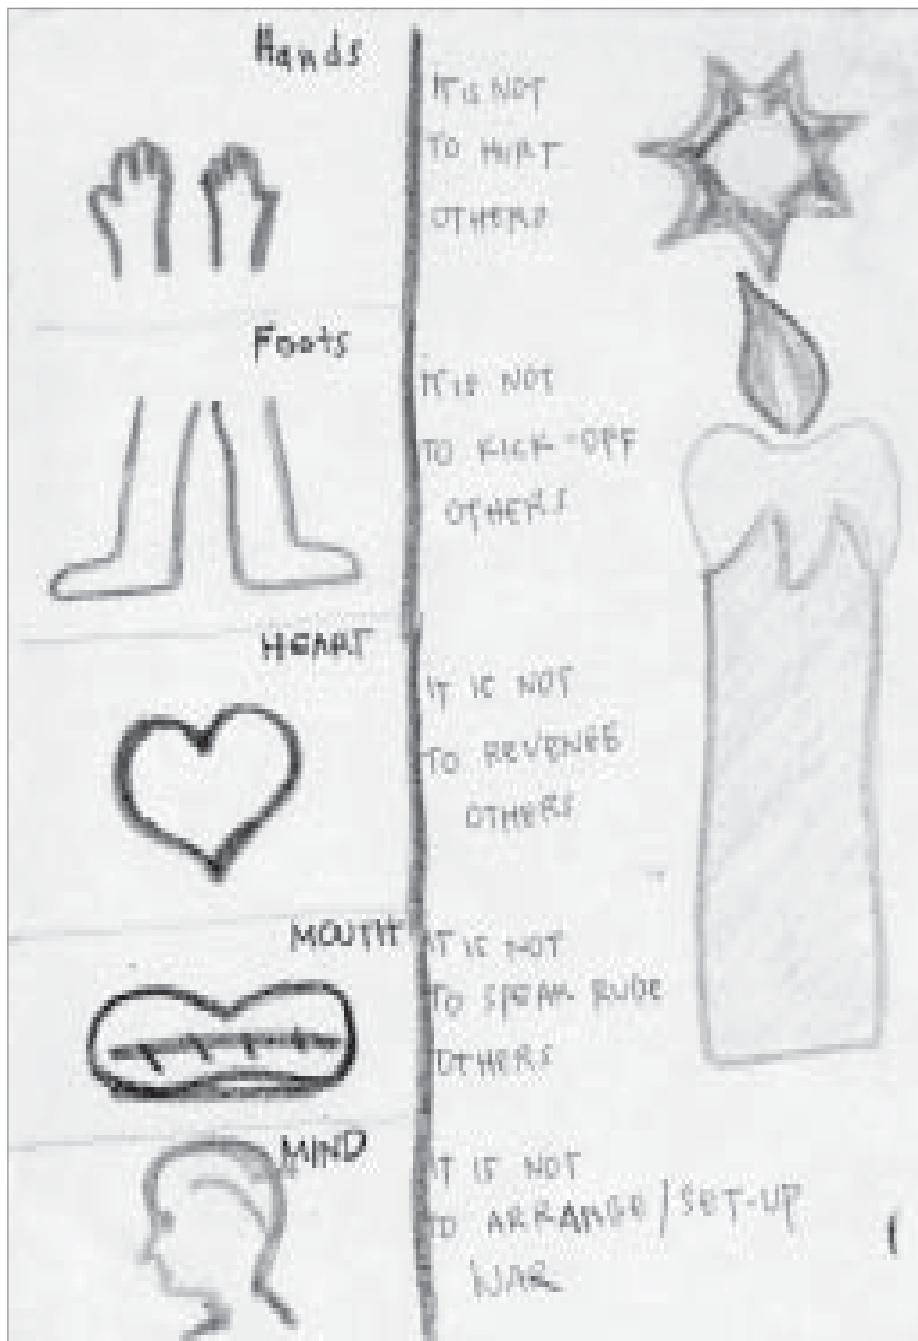 Hands
IT IS NOT
TO HURT
OTHERS
Foots
IT IS NOT
TO KICK-OFF
OTHERS
HEART
IT IS NOT
TO REVENGE
OTHERS
MOUTH
IT IS NOT
TO SPEAK RUDE
OTHERS
MIND
IT IS NOT
TO ARRANGE/SET-UP
WAR